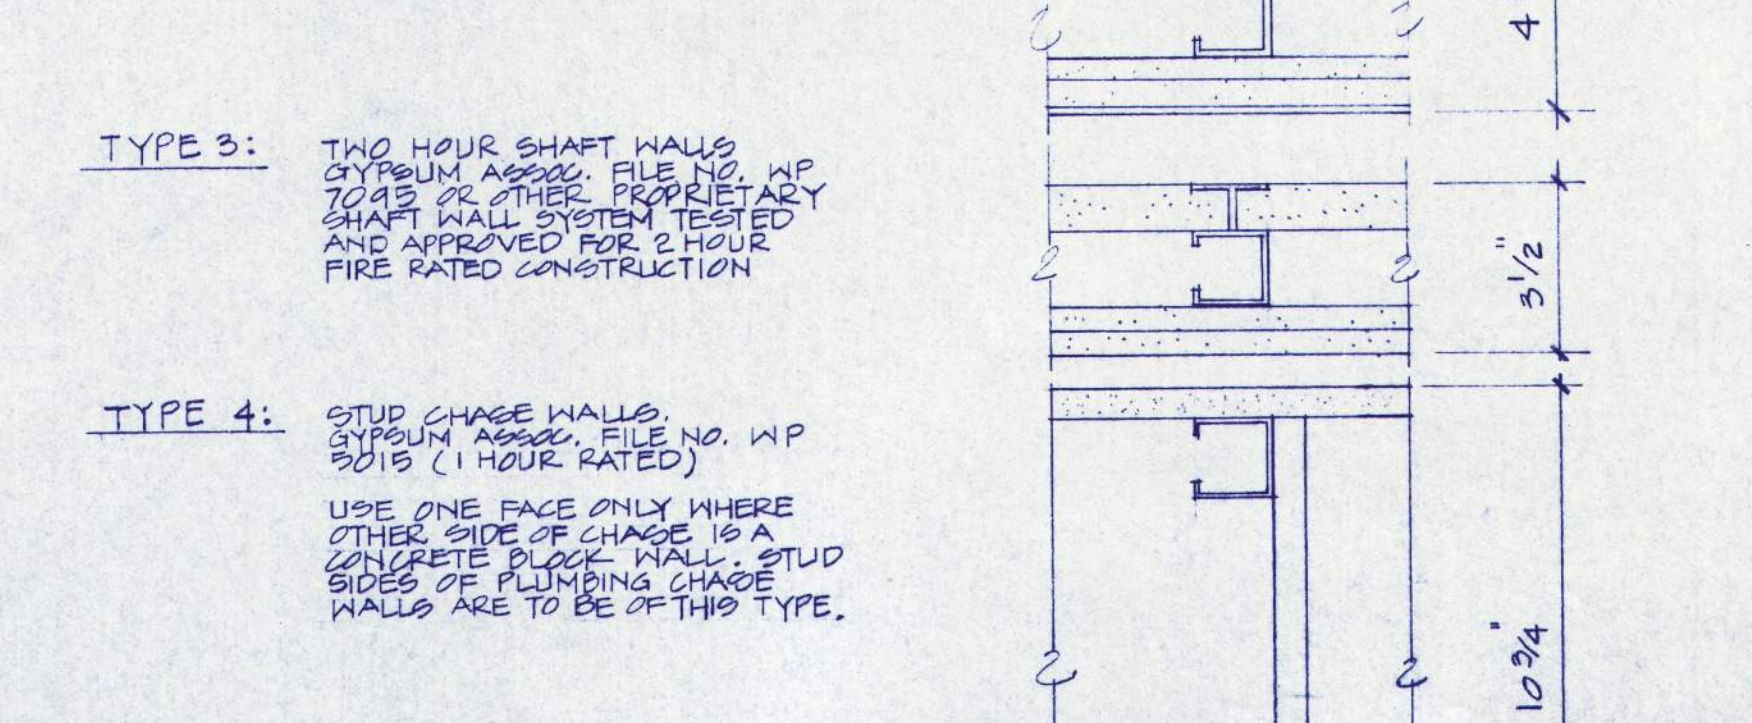 TYPE 3:
TWO HOUR SHAFT WALLS
GYPSUM ASSOC. FILE NO. WP
7095 OR OTHER PROPRIETARY
SHAFT WALL SYSTEM TESTED
AND APPROVED FOR 2 HOUR
FIRE RATED CONSTRUCTION
TYPE 4:
STUD CHASE WALLS.
GYPSUM ASSOC. FILE NO. WP
5015 (1 HOUR RATED)
USE ONE FACE ONLY WHERE
OTHER SIDE OF CHASE IS A
CONCRETE BLOCK WALL. STUD
SIDES OF PLUMBING CHASE
WALLS ARE TO BE OF THIS TYPE.
4
3 1/2"
10 3/4"